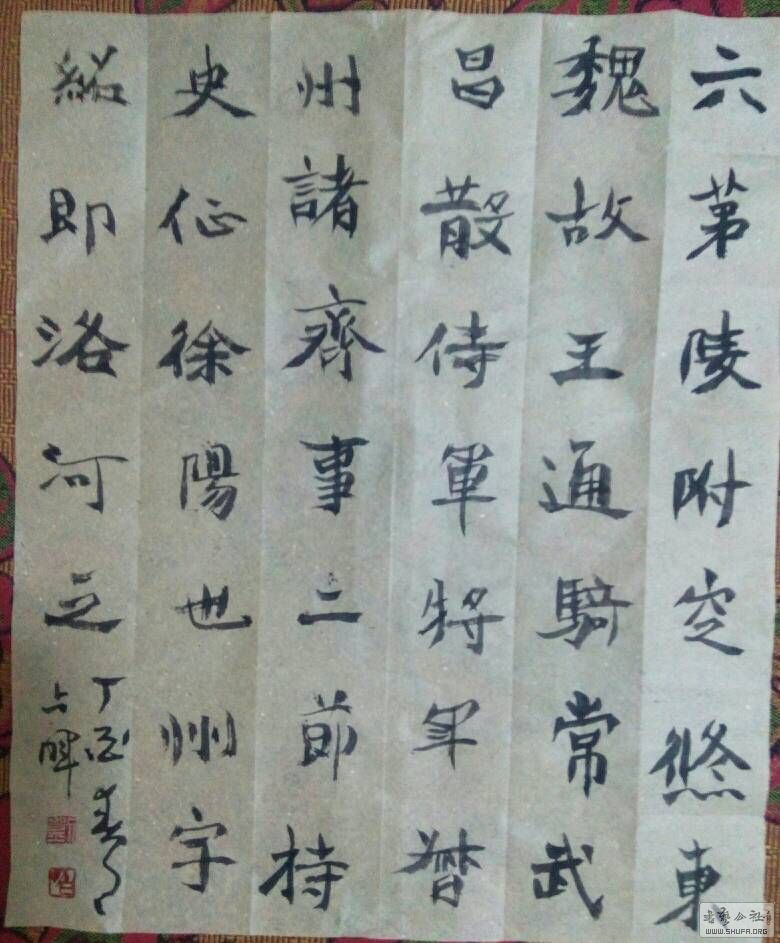 六第陵附空悠東
魏故王通騎常武
昌散侍軍將軍督
州諸齊事二節持
史征徐陽也州字
紹即洛河之
丁酉春月
WWW.SHUFA.ORG